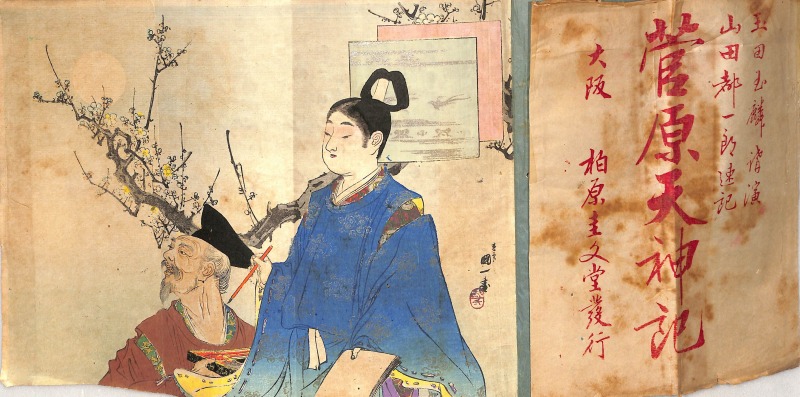 玉田玉麟講演
山田都一郎速記
菅原天神記
大阪 柏原圭文堂發行
國一画